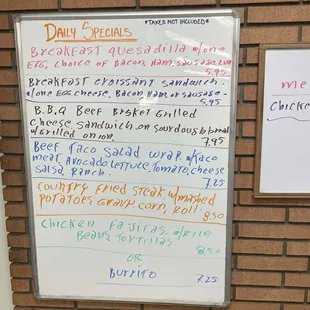 Daily Specials
*TAXES NOT INCLUDED*
BREAKFAST QUESADILLA w/ONE
EGG, CHOICE OF BACON, HAM, SAUSAGE LINK
5.95
BREAKFAST CROISSANT SANDWICH.
w/ONE EGG, CHEESE, BACON, HAM OR SAUSAGE -
5.95
B.B.Q BEEF BRISKET GRILLED
CHEESE SANDWICH ON SOURDOUGH BREAD
w/GRILLED ONION
7.95
BEEF TACO SALAD WRAP w/TACO
MEAT, AVOCADO LETTUCE, TOMATO, CHEESE
SALSA, RANCH.
7.25
COUNTRY FRIED STEAK w/MASHED
POTATOES GRAVY, CORN, ROLL
8.50
CHICKEN FAJITAS w/RICE
BEANS TORTILLAS.
8.50
OR
BURRITO
7.25
ME
CHICKE